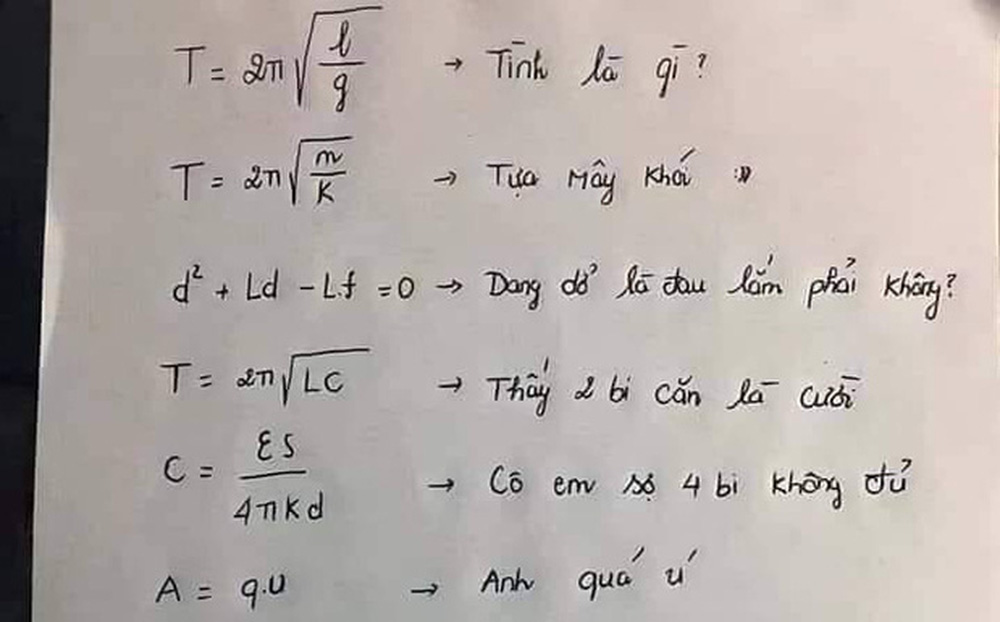 T = 2π√(l/g) → Tình là gì?
T = 2π√(m/K) → Tựa mây khói :))
d² + Ld - L.f = 0 → Dang dở là đau lắm phải không?
T = 2π√LC → Thấy 2 bi căn là cười
C = εS/4πKd → Cô em sợ 4 bi không đủ
A = q.U → Anh quá ú